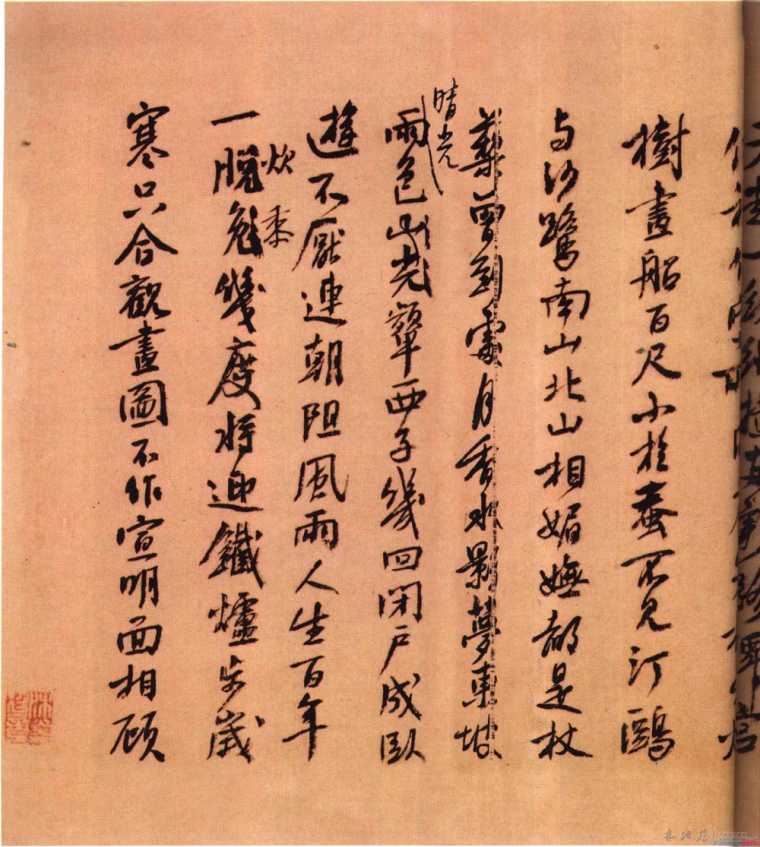 樹畫船百尺小於蚕不見汀鷗
与沙鷺南山北山相媚嫵都是杖
藜曾到處月香水影夢東坡
晴光
雨色山光顰西子幾回閉户成臥
遊不厭連朝阻風雨人生百年
炊黍
一脫兔幾度將迎鐵爐步歲
寒只合觀畫圖不作宣明面相顧